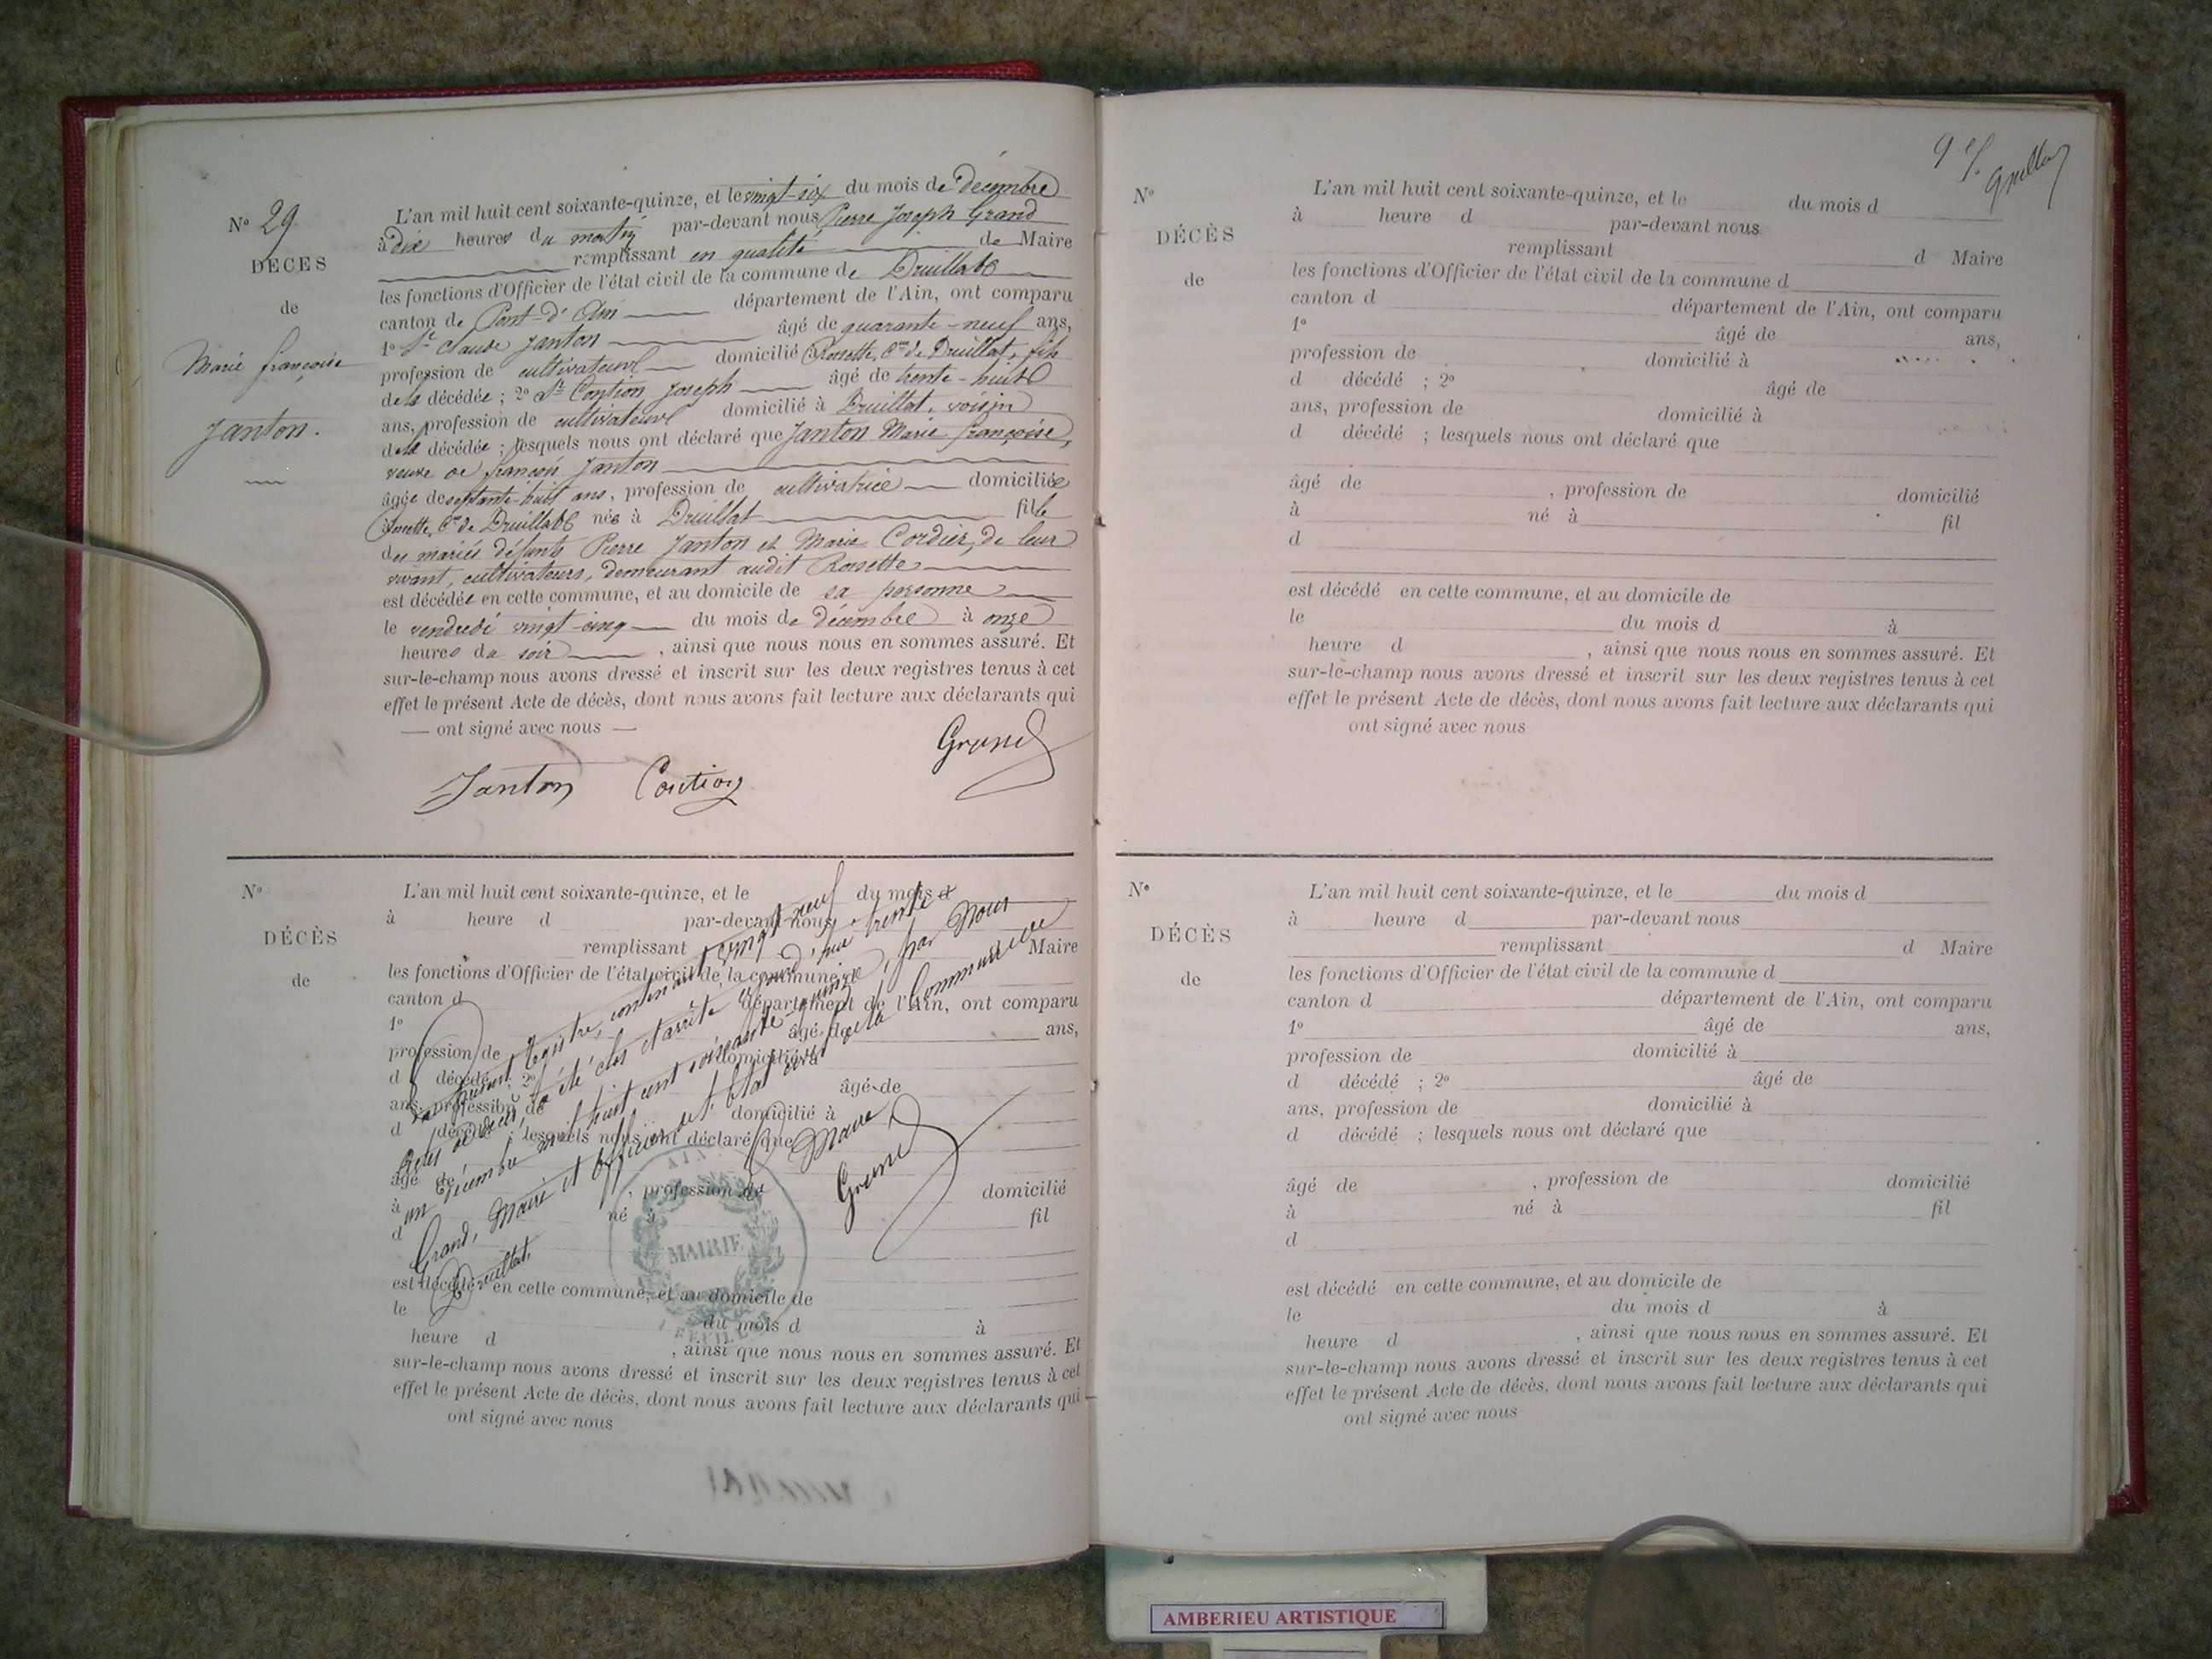 N° 29
DÉCÈS
de
Marie françoise
Janton.
L'an mil huit cent soixante-quinze, et le vingt-six du mois de décembre
à dix heures du matin par-devant nous Pierre Joseph Grand
remplissant en qualité de Maire
les fonctions d'Officier de l'état civil de la commune de Druillat
canton de Pont-d'Ain département de l'Ain, ont comparu
1° Sr Claude Janton âgé de quarante-neuf ans,
profession de cultivateur domicilié à Rossette, Cne de Druillat, fils
de la décédée ; 2° Sr Contion Joseph âgé de trente-huit
ans, profession de cultivateur domicilié à Druillat, voisin
de la décédée ; lesquels nous ont déclaré que Janton Marie françoise,
veuve de françois Janton
âgée de septante-huit ans, profession de cultivatrice domiciliée
à Rossette, Cne de Druillat née à Druillat fille
des mariés défunts Pierre Janton et Marie Cordier, de leur
vivant, cultivateurs, demeurant audit Rossette
est décédée en cette commune, et au domicile de sa personne
le vendredi vingt-cinq du mois de décembre à onze
heures du soir , ainsi que nous nous en sommes assuré. Et
sur-le-champ nous avons dressé et inscrit sur les deux registres tenus à cet
effet le présent Acte de décès, dont nous avons fait lecture aux déclarants qui
— ont signé avec nous —
Janton Contion Grand
N°
DÉCÈS
de
L'an mil huit cent soixante-quinze, et le du mois d
à heure d par-devant nous
remplissant Maire
les fonctions d'Officier de l'état civil de la commune d
canton d département de l'Ain, ont comparu
1° âgé de ans,
profession de domicilié à
d décédé ; 2° âgé de
ans, profession de domicilié à
d décédé ; lesquels nous ont déclaré que
âgé de , profession de domicilié
à né à fil
d
est décédé en cette commune, et au domicile de
le du mois d à
heure d , ainsi que nous nous en sommes assuré. Et
sur-le-champ nous avons dressé et inscrit sur les deux registres tenus à cet
effet le présent Acte de décès, dont nous avons fait lecture aux déclarants qui
ont signé avec nous
Le présent Registre, contenant vingt neuf
actes de décès, a été clos et arrêté cejourd'hui trente
un décembre mil huit cent soixante-quinze, par Nous
Grand, Maire et Officier de l'état civil de la Commune de
Druillat.
Le Maire
Grand
AIN
MAIRIE
9e f.
N°
DÉCÈS
de
L'an mil huit cent soixante-quinze, et le du mois d
à heure d par-devant nous
remplissant d Maire
les fonctions d'Officier de l'état civil de la commune d
canton d département de l'Ain, ont comparu
1° âgé de ans,
profession de domicilié à
d décédé ; 2° âgé de
ans, profession de domicilié à
d décédé ; lesquels nous ont déclaré que
âgé de , profession de domicilié
à né à fil
d
est décédé en cette commune, et au domicile de
le du mois d à
heure d , ainsi que nous nous en sommes assuré. Et
sur-le-champ nous avons dressé et inscrit sur les deux registres tenus à cet
effet le présent Acte de décès, dont nous avons fait lecture aux déclarants qui
ont signé avec nous
N°
DÉCÈS
de
L'an mil huit cent soixante-quinze, et le du mois d
à heure d par-devant nous
remplissant d Maire
les fonctions d'Officier de l'état civil de la commune d
canton d département de l'Ain, ont comparu
1° âgé de ans,
profession de domicilié à
d décédé ; 2° âgé de
ans, profession de domicilié à
d décédé ; lesquels nous ont déclaré que
âgé de , profession de domicilié
à né à fil
d
est décédé en cette commune, et au domicile de
le du mois d à
heure d , ainsi que nous nous en sommes assuré. Et
sur-le-champ nous avons dressé et inscrit sur les deux registres tenus à cet
effet le présent Acte de décès, dont nous avons fait lecture aux déclarants qui
ont signé avec nous
AMBERIEU ARTISTIQUE